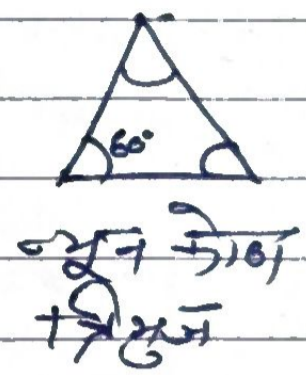 60°
न्यून कोण
त्रिभुज